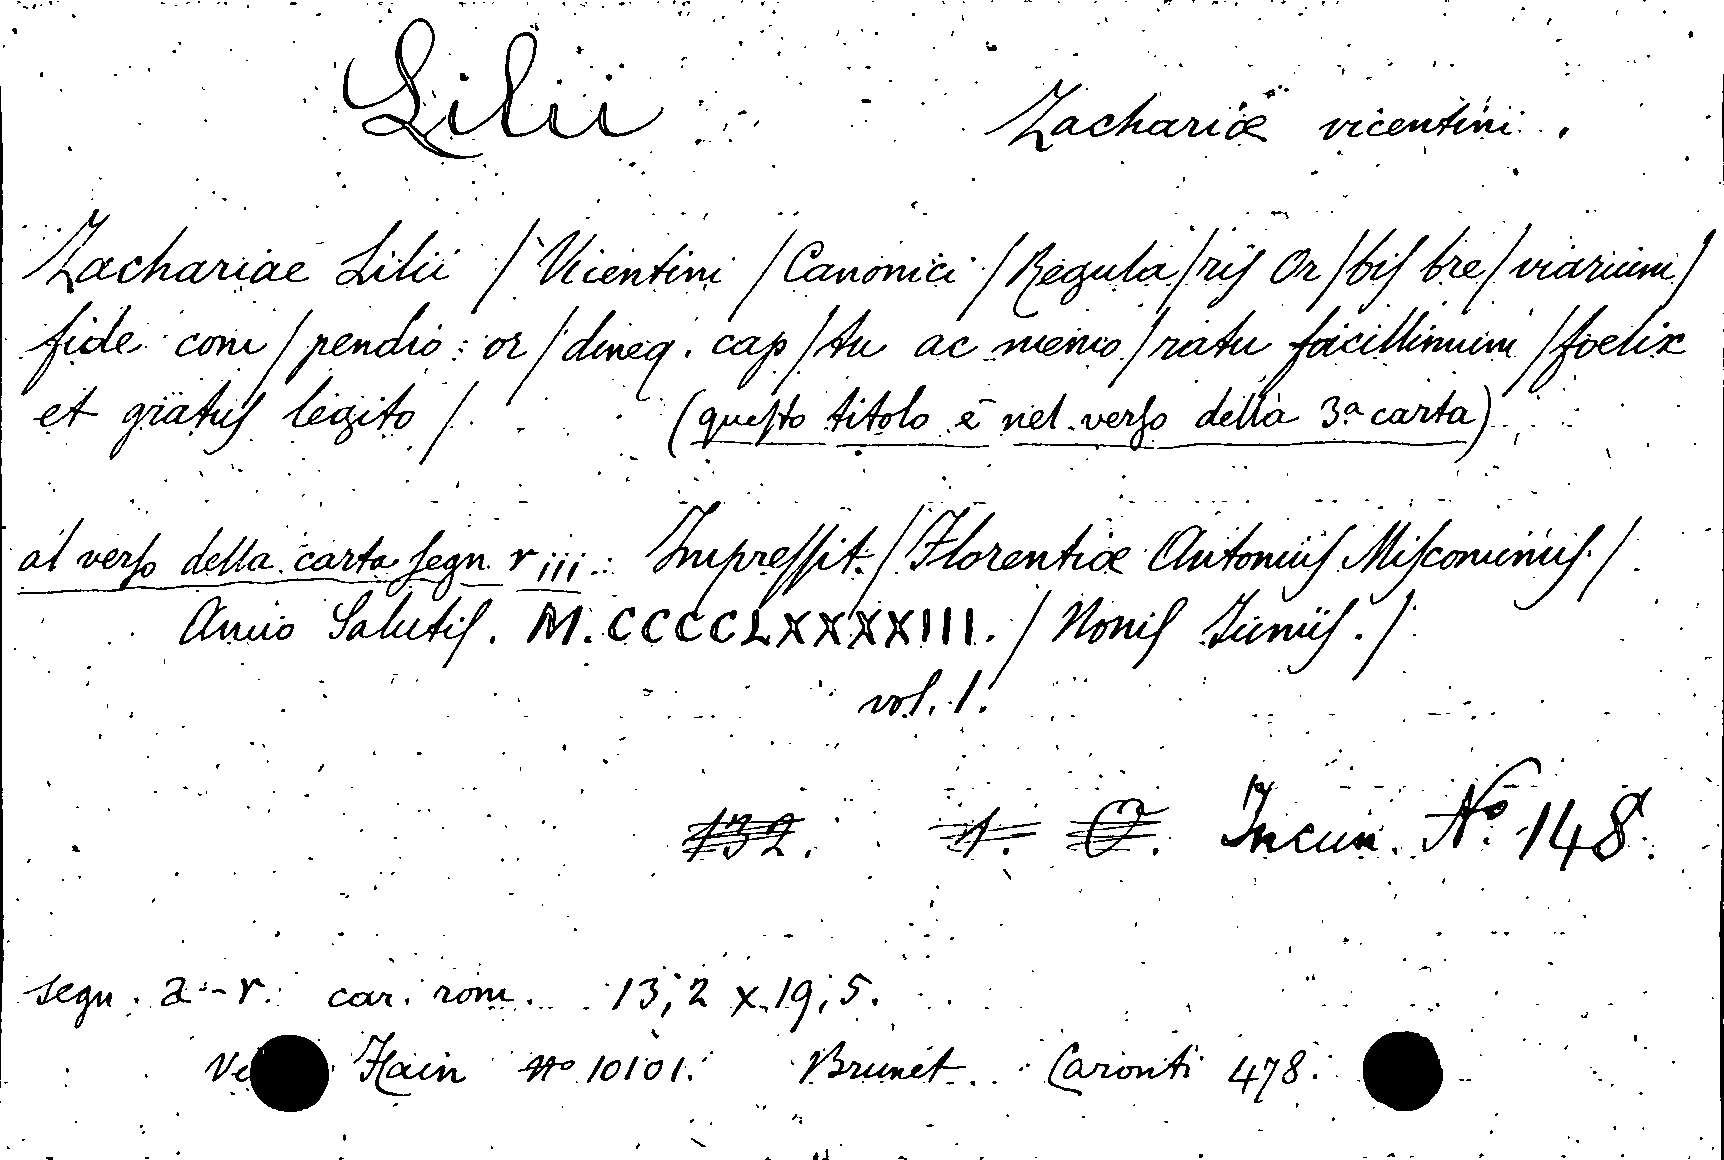 Lilii Zachariæ vicentini.
Zachariae Lilii / Vicentini / Canonici / Regula/ris Or/bis bre/viarium/
fide com/pendio: or/dineq. cap/tu ac memo/ratu facillimum /foelix
et gratus legito /. (questo titolo è nel verso della 3ª carta)
al verso della carta segn r iii: Impressit. / Florentiæ Antonius Miscominus. /
Anno Salutis. M.CCCCLXXXXIII. / Nonis Juniis. /
vol. 1.
132. A. O. Incun. Nº 148.
segn. a-r. car. rom. 13,2 x 19,5.
Hain nº 10101. Brunet. Caronti 478.